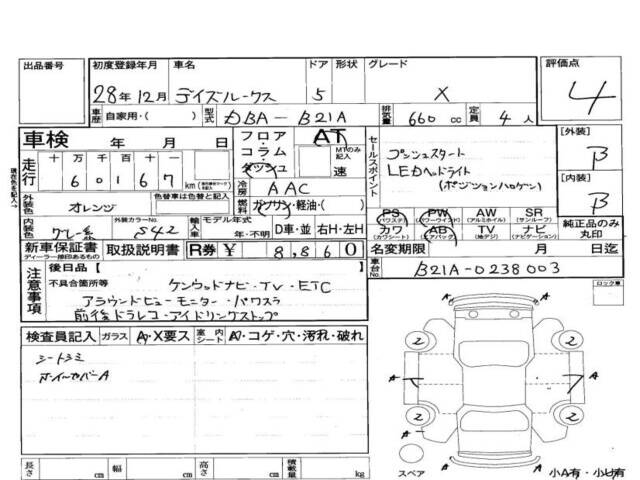 出品番号
初度登録年月 車名 ドア 形状 グレード 評価点
28年12月 デイズルークス 5 X 4
車歴 自家用・( ) 型式 DBA-B21A 排気量 660 cc 定員 4 人
車検 年 月 日
フロア コラム ダッシュ
AT
MTのみ記入 速
セールスポイント
プッシュスタート
LEDヘッドライト
(ポジションハロゲン)
[外装] B
[内装] B
走行 十 万 千 百 十 一
6 0 1 6 7 km
冷房 AAC
外装色 オレンジ
色替車は色替と記入
燃料 ガソリン・軽油・( )
内装色 グレー系 外装カラーNo. S42
輸入車 モデル年式 年・不明 D車・並 右H・左H
PS (パワステ) PW (パワーウインド) AW (アルミホイル) SR (サンルーフ)
カワ (カワシート) AB (エアバッグ) TV (地デジ) ナビ (ナビゲーション)
純正品のみ丸印
新車保証書 ディーラー捺印あるもの 取扱説明書 R券 ¥ 8,860
名変期限 月 日迄
車台No. B21A-0238003
注意事項 後日品 [ ]
不具合箇所等
ケンウッドナビ・TV・ETC
アラウンドビューモニター・パワスラ
前後ドラレコ・アイドリングストップ
ロック車
検査員記入 ガラス A・X要ス 室内シート A・コゲ・穴・汚れ・破れ
シートシミ
ホイールカバーA
2 2
A A
2 2
A
スペア
小A有・小U有
長さ cm 幅 cm 高さ cm 積載量 kg